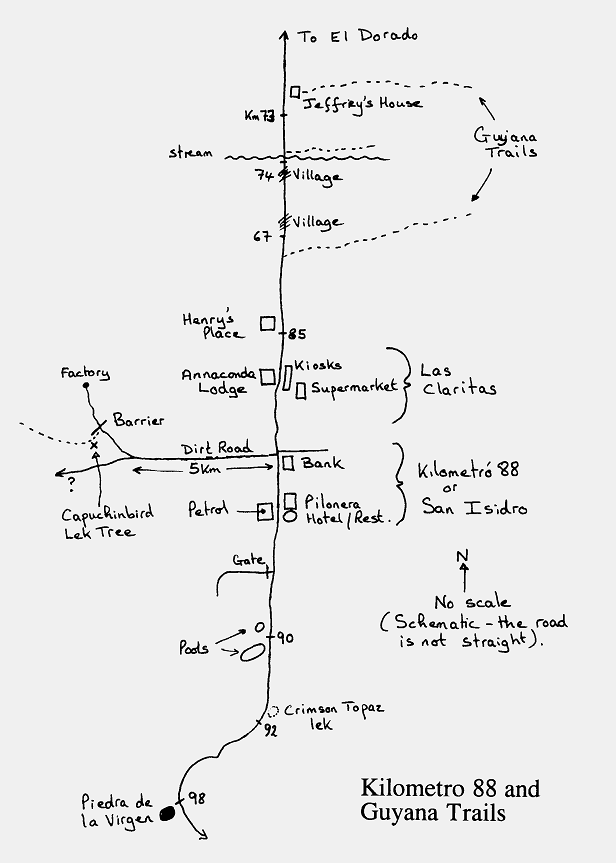 To El Dorado
Jeffrey's House
Km 73
Guyana
Trails
stream
74
Village
Village
67
Henry's
Place
85
Kiosks
Annaconda
Lodge
Supermarket
Las
Claritas
Factory
Barrier
Dirt Road
5Km
Bank
?
Kilometró 88
or
San Isidro
Capuchinbird
Lek Tree
Petrol
Pilonera
Hotel/Rest.
Gate
N
No scale
(Schematic - the road
is not straight).
Pools
90
Crimson Topaz
lek
92
Piedra de
la Virgen
98
Kilometro 88 and
Guyana Trails